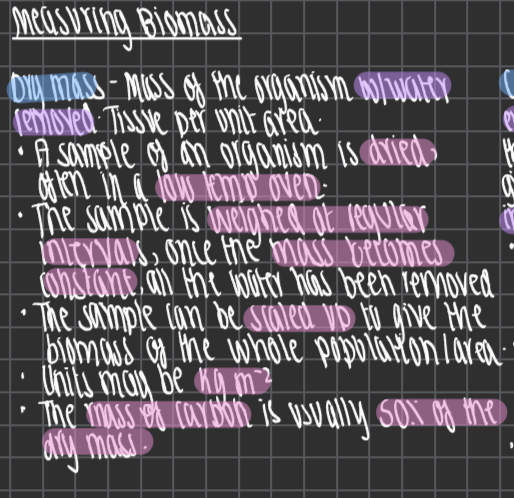 Measuring Biomass
Dry mass - Mass of the organism w/water
removed. Tissue per unit area.
• A sample of an organism is dried,
often in a low temp oven.
• The sample is weighed at regular
intervals, once the mass becomes
constant, all the water has been removed
• The sample can be scaled up to give the
biomass of the whole population/area.
• Units may be kg m⁻²
• The mass of carbon is usually 50% of the
dry mass.